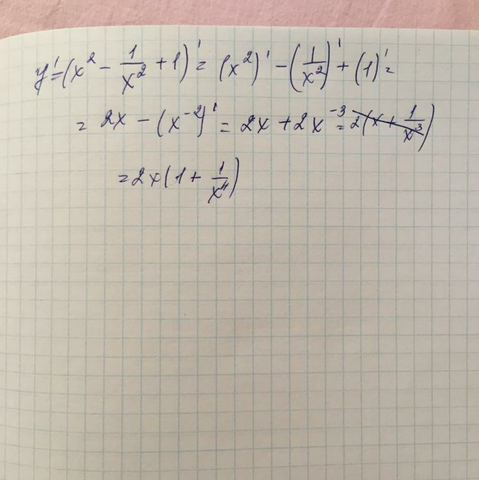 y' = (x² - 1/x² + 1)' = (x²)' - (1/x²)' + (1)' =
= 2x - (x⁻²)' = 2x + 2x⁻³ = 2(x + 1/x³)
= 2x(1 + 1/x⁴)